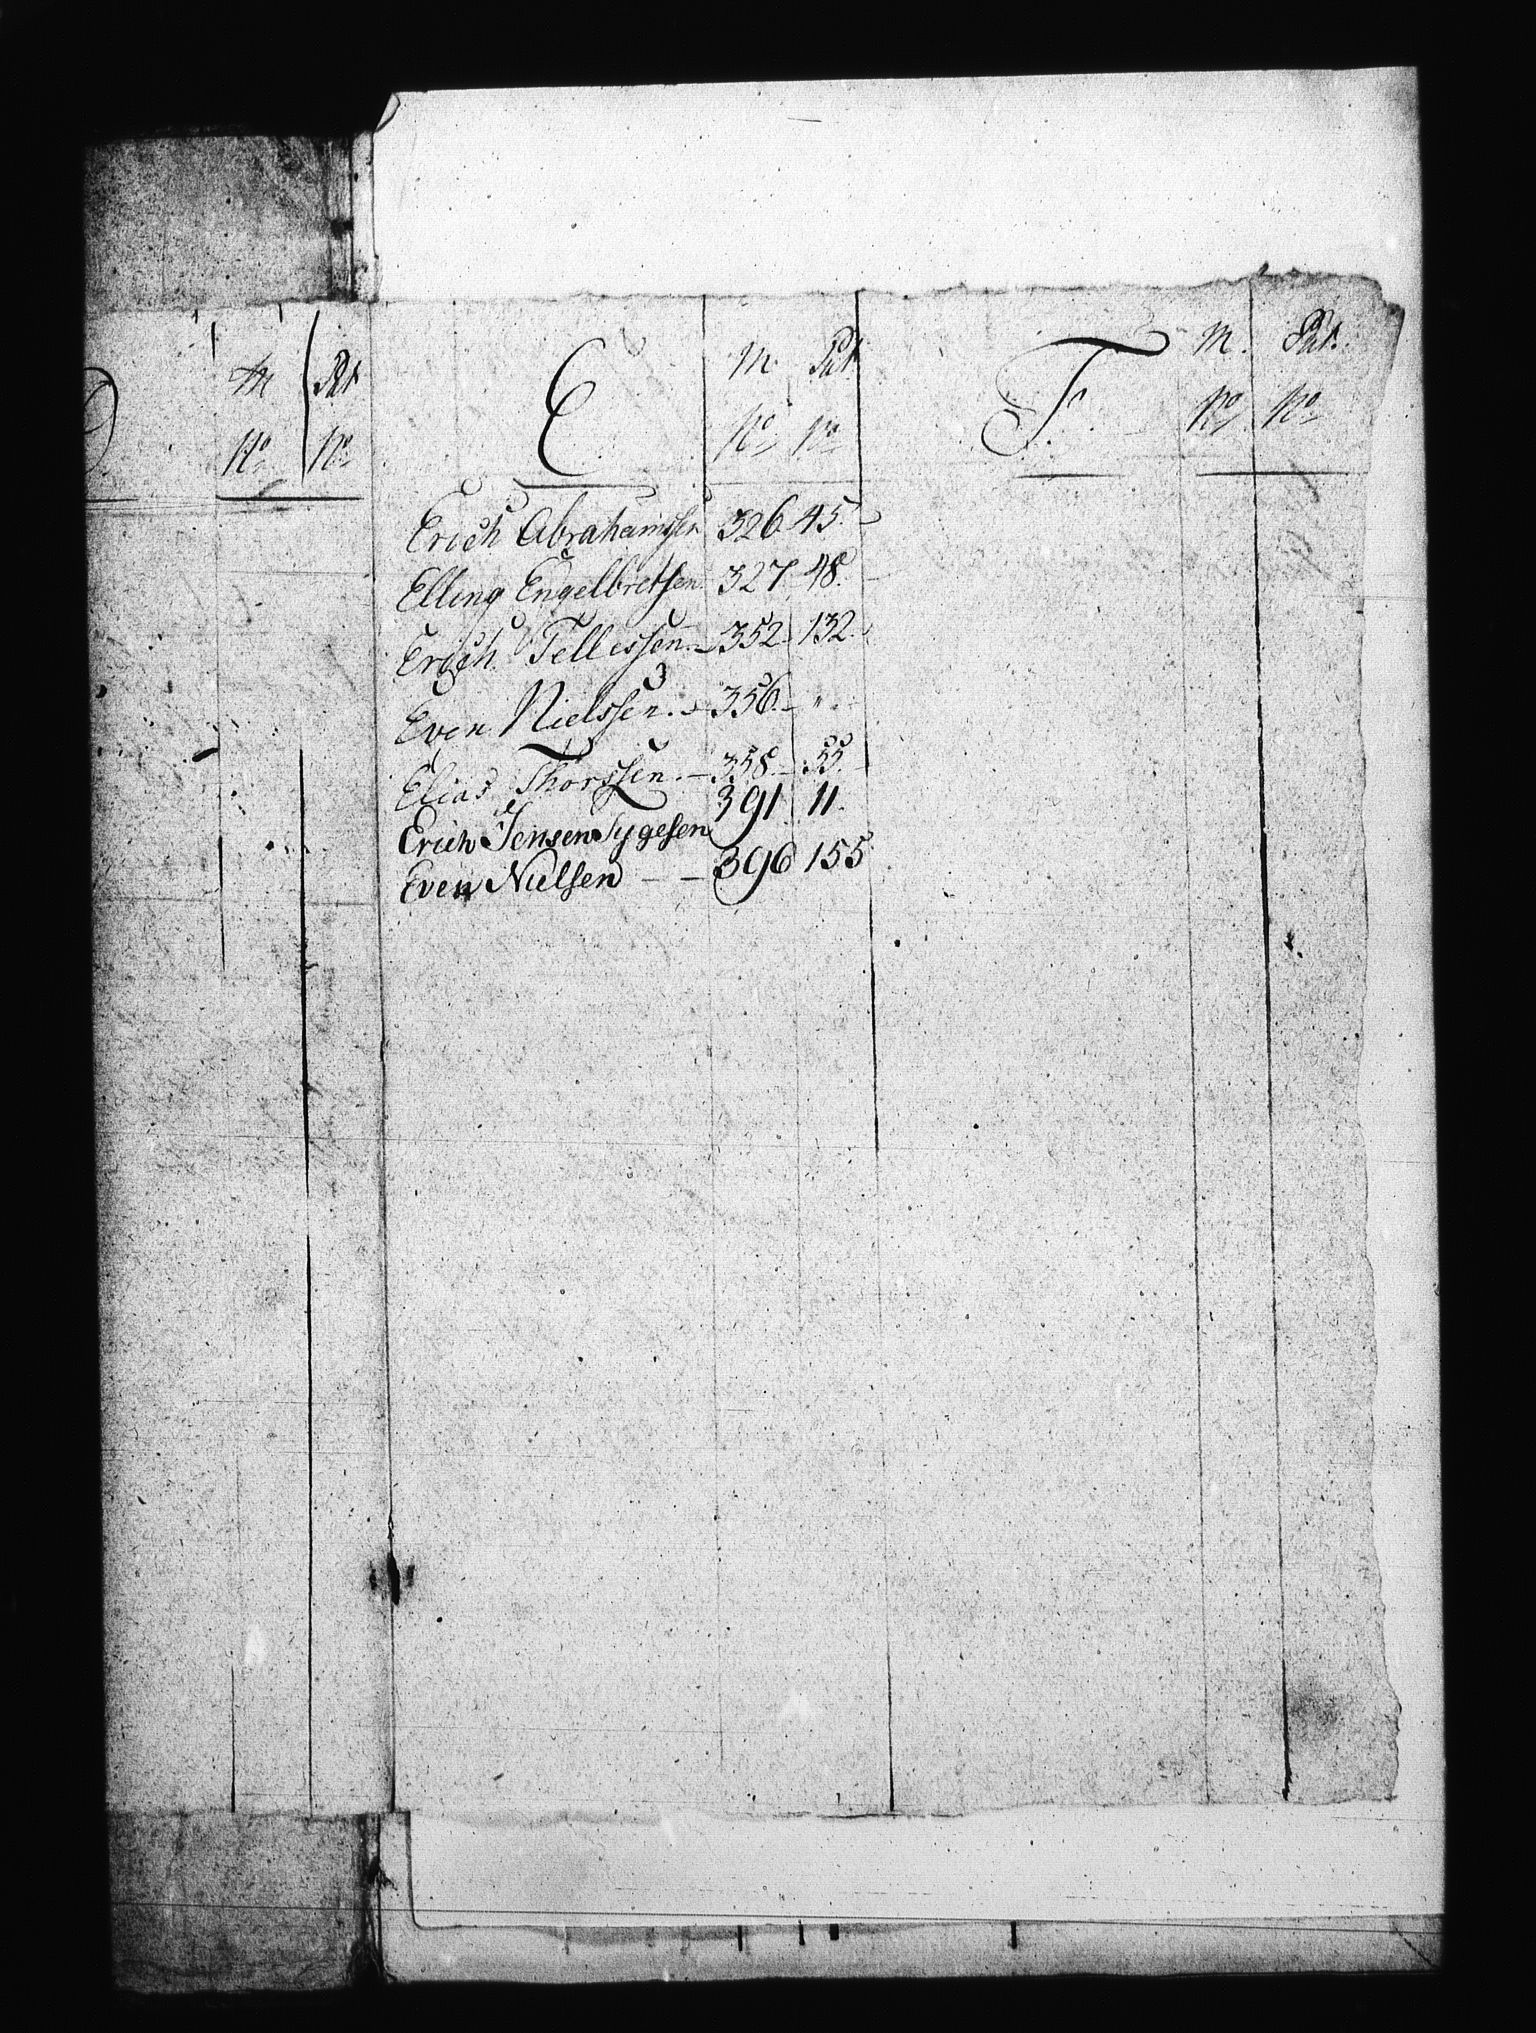 D.
M Pat
No No
E
M. Pat
No No
Erich Abrahamssen 326. 45.
Elling Engelbretsen 327. 48.
Erich Tellessen. 352. 132.
Even Nielssen. 356. "
Elias Thorssen. 358. 55.
Erich Jensen Tygesen 391. 11.
Even Nielsen 396 155
F.
M. Pat.
No No